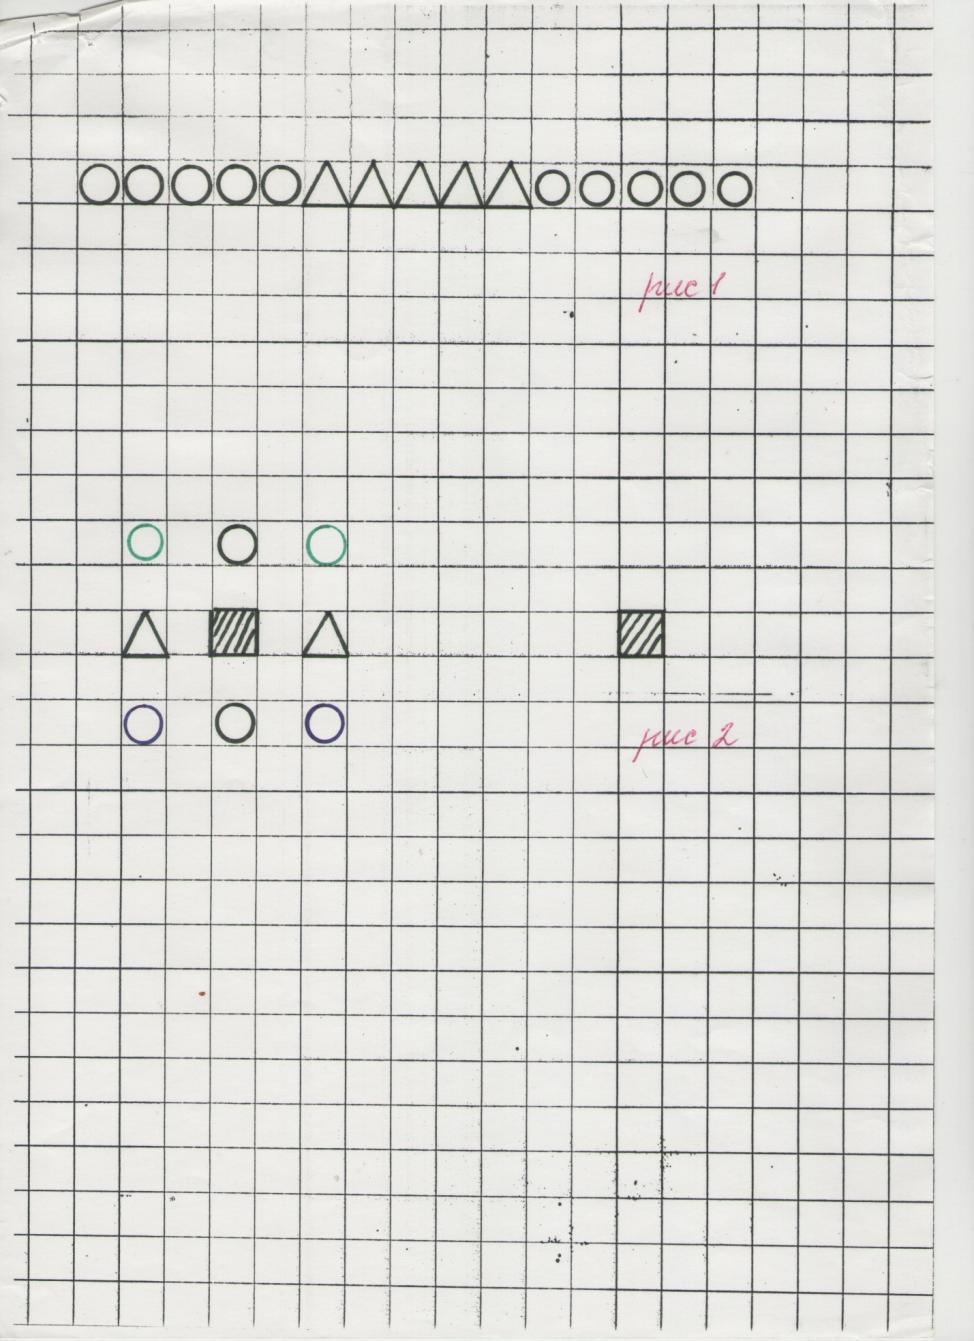 рис 1
рис 2